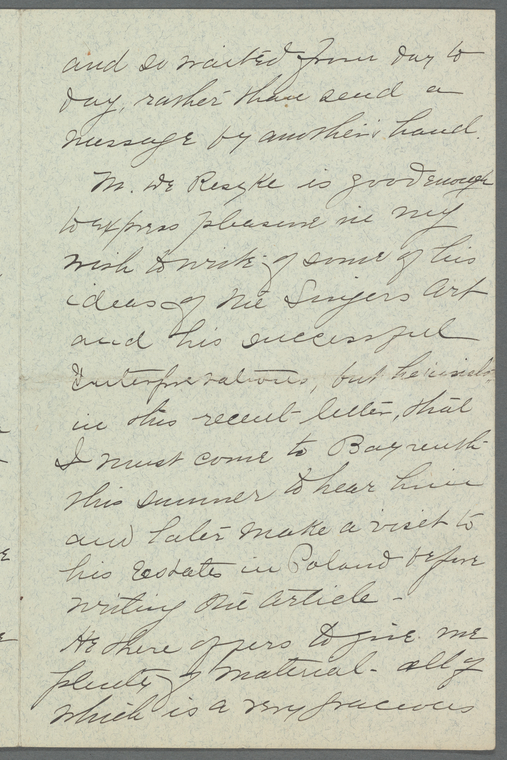 and so waited from day to
day, rather than send a
message by another's hand.
M. de Reszke is good enough
to express pleasure in my
wish to write of some of his
ideas of the Singers Art
and his successful
Interpretations, but he insists
in this recent letter, that
I must come to Bayreuth
this summer to hear him
and later make a visit to
his Estates in Poland before
writing the article -
He there offers to give me
plenty of material - all of
which is a very gracious